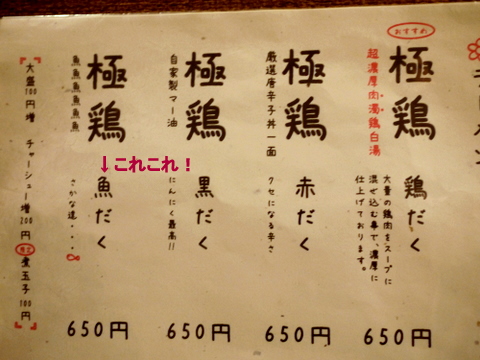 おすすめ
超濃厚肉濁鶏白湯
極鶏
鶏だく
大量の鶏肉をスープに
混ぜ込む事で、濃厚に
仕上げております。
650円
厳選唐辛子丼一面
極鶏
赤だく
クセになる辛さ
650円
自家製マー油
極鶏
黒だく
にんにく最高!!
650円
魚魚魚魚魚魚
極鶏
↓これこれ！
魚だく
さかな道・・・
650円
大盛100円増 チャーシュー増200円 煮玉子100円